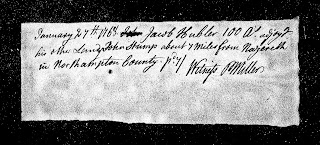 January 27th 1763 Jacob Hubler 100 As. adjoyg
his other Land & John Stump about 7 Miles from Nazareth
in Northampton County
Witness P Miller